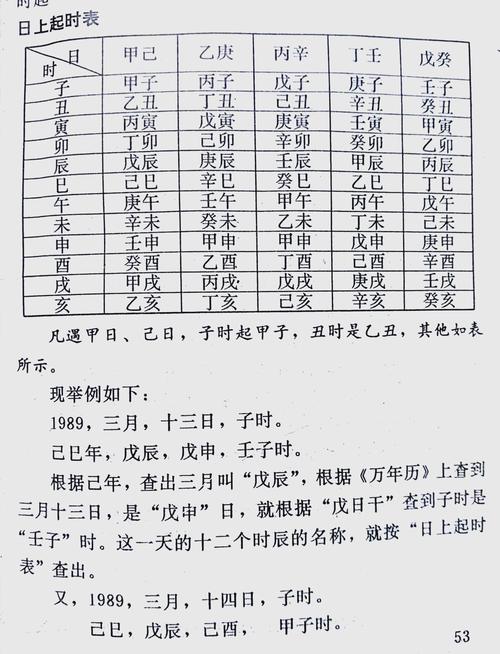 时起
日上起时表
日 时 甲己 乙庚 丙辛 丁壬 戊癸
子 甲子 丙子 戊子 庚子 壬子
丑 乙丑 丁丑 己丑 辛丑 癸丑
寅 丙寅 戊寅 庚寅 壬寅 甲寅
卯 丁卯 己卯 辛卯 癸卯 乙卯
辰 戊辰 庚辰 壬辰 甲辰 丙辰
巳 己巳 辛巳 癸巳 乙巳 丁巳
午 庚午 壬午 甲午 丙午 戊午
未 辛未 癸未 乙未 丁未 己未
申 壬申 甲申 甲申 戊申 庚申
酉 癸酉 乙酉 丁酉 己酉 辛酉
戌 甲戌 丙戌 戊戌 庚戌 壬戌
亥 乙亥 丁亥 己亥 辛亥 癸亥
凡遇甲日、己日，子时起甲子，丑时是乙丑，其他如表
所示。
现举例如下：
1989，三月，十三日，子时。
己巳年，戊辰，戊申，壬子时。
根据己年，查出三月叫“戊辰”，根据《万年历》上查到
三月十三日，是“戊申”日，就根据“戊日干”查到子时是
“壬子”时。这一天的十二个时辰的名称，就按“日上起时
表”查出。
又，1989，三月，十四日，子时。
己巳，戊辰，己酉， 甲子时。
53